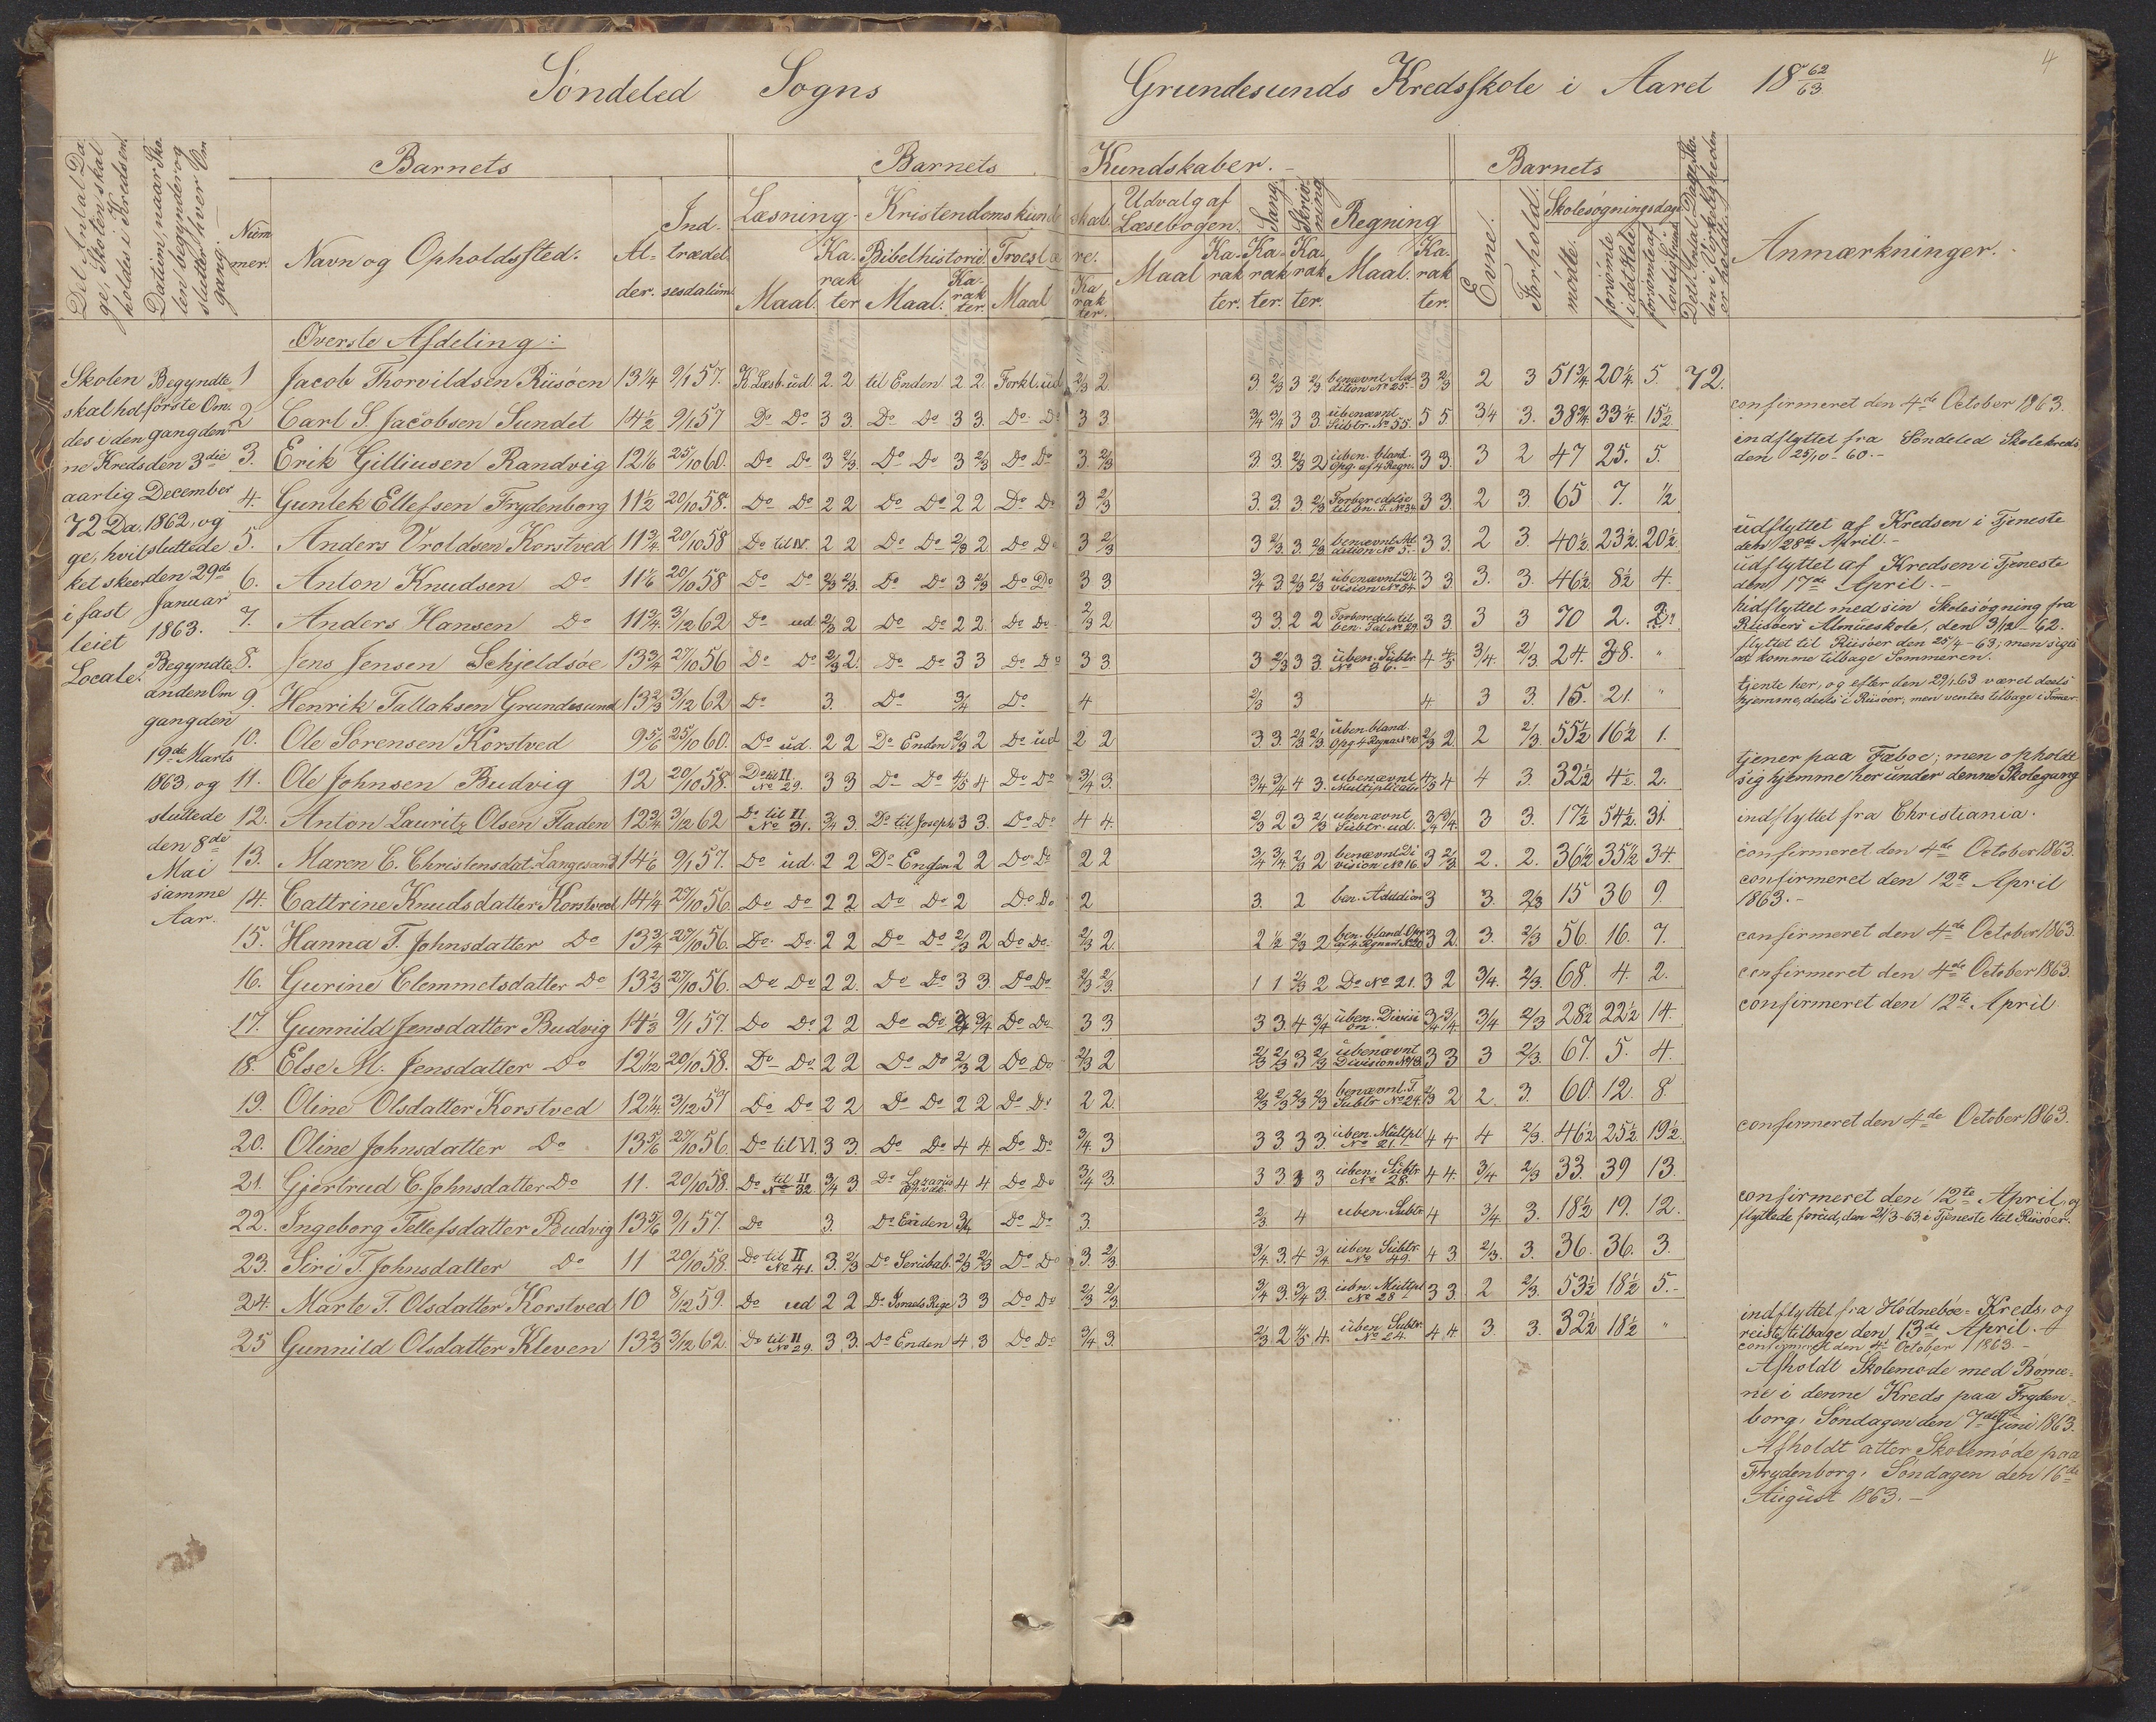 Söndeled Sogns Grundesunds Kredsskole i Aaret 18 62/63
4
Det Antal Da-
ge, Skolen skal
holdes i Kredsen
Datum, naar Sko-
len begynder og
slutter hver Om
gang.
Barnets
Barnets Kundskaber.
Barnets
Num
mer.
Navn og Opholdssted.
Al-
der.
Ind-
trædel
sesdatum.
Læsning
Maal.
Ka-
rak
ter
Kristendomskund skab.
Bibelhistorie
Maal.
Ka-
rak
ter.
Troeslæ re.
Maal
Ka
rak
ter.
Udvalg af
Læsebogen.
Maal
Ka-
rak
ter.
Sang
Ka-
rak
ter.
Skriv-
ning
Ka-
rak
ter.
Regning
Maal.
Ka-
rak
ter.
Evne.
Forhold.
Skolesøgningsdage
mødte.
forsømte
i det Hele
forsømte af
lovlig Grund
Det Antal Dage, Sko-
len i Virkeligheden
er holdt
Anmærkninger.
Øverste Afdeling:
Skolen
skal hol
des i den
ne Kreds
aarlig
72 Da-
ge, hvil
ket skeer
i fast
leiet
Locale.
Begyndte
første Om-
gang den
den 3die
December
1862, og
sluttede
den 29de
Januar
1863.
Begyndte
anden Om
gang den
19de Marts
1863, og
sluttede
den 8de
Mai
samme
Aar.
1 Jacob Thorvildsen Riisöen 13 1/4 9/1 57. K. Læsb. ud. 2. 2 til Enden 2 2. Forkl. ud 2/3 2 3 2/3 3 2/3 benævnt Ad
dition No 25. 3 2/3 2 3 51 3/4 20 1/4. 5. 72.
2 Carl S. Jacobsen Sundet 14 1/2 9/1 57 Do Do 3 3. Do Do 3 3. Do Do 3 3 3/4 3/4 3 3 ubenævnt
Subtr. No 55. 5 5. 3/4 3. 38 3/4 33 1/4. 15 1/2. confirmeret den 4de October 1863.
3. Erik Gilliusen Randvig 12 1/6 25/10 60. Do Do 3 2/3. Do Do 3 2/3 Do Do 3. 2/3 3. 3. 2/3 2 uben. bland.
Opg. af 4 Regn. 3 3. 3 2 47 25. 5. indflyttet fra Söndeled Skolekreds
den 25/10 - 60.
4. Gunlek Ellefsen Frydenborg 11 1/2 20/10 58. Do Do 2 2 Do Do 2 2 Do Do 3 2/3 3. 3. 3 2/3 Forberedelse
til bn. T. No 34 3 3. 2 3. 65 7. 1/2
5. Anders Vroldsen Korstved 11 3/4 20/10 58 Do til IV. 2 2 Do Do 2/3 2. Do Do 3 2/3 3 2/3. 3. 2/3 benævnt Ad
dition No 5. 3 3. 2 3. 40 1/2. 23 1/2. 20 1/2. udflyttet af Kredsen i Tjeneste
den 28de April.
6. Anton Knudsen Do 11 1/6 20/10 58 Do Do 2/3 2/3. Do Do 3 2/3 Do Do 3 3 3/4 3. 2/3 2/3 ubenævnt Di
vision No 34. 3 3 3. 3. 46 1/2 8 1/2 4. udflyttet af Kredsen i Tjeneste
den 17de April.
7. Anders Hansen Do 11 3/4 3/12 62 Do ud 2/3 2 Do Do 2 2. Do Do 2/3 2 3 3. 2 2 Forberedels. til
ben. Tal No 29. 3 3 3 3 70 2. hidflyttet med sin Skolesøgning fra
Riisöens Almueskole, den 3/12 - 62.
8. Jens Jensen Schjeldsöe 13 3/4 27/10 56 Do Do 2/3 2. Do Do 3 3 Do Do 3 3 3 2/3 3 3. uben. Subtr.
No 86. 4 4/5 3/4. 2/3 24. 38. " flyttet til Riisöer den 25/4 - 63; men siges
at komme tilbage Sommeren.
9. Henrik Tallaksen Grundesund 13 2/3 3/12 62 Do 3. Do 3/4 Do 4 2/3 3 4. 3 3. 15. 21. " tjente her, og efter den 29/1 63 været deels
hjemme, deels i Riisöer, men ventes tilbage i Sommer.
10. Ole Sorensen Korstved 9 5/6 25/10 60. Do ud. 2 2 Do Enden 2/3 2 Do ud 2 2 3. 3. 2/3 2/3. uben. bland.
Opg. 4 Regnar. No 10. 2/3 2 2 2/3. 55 1/2 16 1/2 1.
11. Ole Johnsen Budvig 12 20/10 58. Do til II
No 29. 3 3 Do Do 4/5 4 Do Do 3/4 3. 3/4 3/4 4 3. ubenævnt
Multiplication 4/5 4 4 3. 32 1/2 4 1/2. 2. tjener paa Fæboe; men opholdt
sig hjemme her under denne Skolegang
12. Anton Lauritz Olsen Fladen 12 3/4 3/12 62 Do til II
No 31. 3/4 3. Do til Joseph 3 3. Do Do 4 4. 2/3 2 3 2/3 ubenævnt
Subtr. ud. 3/4 3/4. 3 3. 17 1/2 54 1/2. 31. indflyttet fra Christiania.
13. Maren C. Christensdat. Langesand 14 1/6 9/1 57. Do ud. 2 2 Do Enden 2 2 Do Do 2 2 3/4 3/4 2/3 2 benævnt Di
vision No 16. 3 2/3 2. 2. 36 1/2 35 1/2 34. confirmeret den 4de October 1863
14. Cattrine Knudsdatter Korstved 14 1/4 27/10 56. Do Do 2 2 Do Do 2 Do Do 2 3. 2 ben. Addition 3 3. 2/3 15 36 9. confirmeret den 12te April
1863.
15. Hanna T. Johnsdatter Do 13 3/4 27/10 56. Do Do 2 2 Do Do 2/3 2 Do Do. 2/3 2. 2 1/2 2/3 2 ben. bland. Opg.
af 4 Regnar. No 20 3 2. 3. 2/3 56. 16. 7. confirmeret den 4de October 1863
16. Gurine Clemmetsdatter Do 13 2/3 27/10 56. Do Do 2 2. Do Do 3 3. Do Do 2/3 2/3. 1 1 2/3 2 Do No 21. 3 2 3/4. 2/3. 68. 4. 2. confirmeret den 4de October 1863.
17. Gunnild Jensdatter Budvig 14 1/3 9/1 57. Do Do 2 2 Do Do 3/4 Do Do 3 3 3 3. 4 3/4 uben. Divisi
on. 3/4 3/4. 3/4 2/3 28 1/2 22 1/2 14. confirmeret den 12te April
18. Else M. Jensdatter Do 12 1/12 20/10 58. Do Do 2 2 Do Do 2/3 2 Do Do 2/3 2 2/3 2/3 3 2/3 ubenævnt
Division No 18. 3 3 3 2/3. 67. 5. 4.
19. Oline Olsdatter Korstved 12 1/4. 3/12 57 Do Do 2 2 Do Do 2 2 Do Do 2 2. 2/3 2/3 2/3 2/3 benævnt T.
Subtr No 24. 2/3 2 2. 3. 60. 12. 8.
20. Oline Johnsdatter Do 13 5/6 27/10 56. Do til VI. 3 3. Do Do 4 4. Do Do 3/4. 3 3 3 3 3. uben. Multpl
No 21. 4 4 4 2/3. 46 1/2 25 1/2. 19 1/2. confirmeret den 4de October 1863.
21. Gjertrud C. Johnsdatter Do 11. 20/10 58. Do til II
No 32. 3/4 3. Do Lazarus
4 4. Do Do 3/4 3. 3 3 3 3 uben. Subtr
No 28. 4 4. 3/4 2/3 33. 39 13.
22. Ingeborg Tellefsdatter Budvig 13 5/6 9/1 57. Do 3. Do Enden 3/4 Do Do 3. 2/3 4 uben. Subtr 4 3/4. 3. 18 1/2 19. 12. confirmeret den 12te April, og
flyttede forud, den 21/3 - 63, i Tjeneste til Riisöer.
23. Siri T. Johnsdatter Do 11 20/10 58. Do til II
No 41. 3. 2/3 Do Serubab. 2/3 2/3 Do Do 3. 2/3. 3/4. 3. 4 3/4 uben Subtr.
No 49. 4 3. 2/3. 3. 36. 36. 3.
24. Marte T. Olsdatter Korstved 10 8/12 59. Do ud 2 2 Do Israels Rige 3 3 Do Do 2/3 2/3 3/4 3. 3/4 3. ubn. Multpl
No 28 3 3. 2 2/3. 53 1/2 18 1/2 5.
25 Gunnild Olsdatter Kleven 13 2/3 3/12 62. Do til II
No 29. 3 3. Do Enden 4 3 Do Do 3/4 3. 2/3 2 4/5 4. uben Subtr.
No 24. 4 4 3. 3. 32 1/2 18 1/2 " indflyttet fra Hödneböe-Kreds, og
reiste tilbage den 13de April.
confirmeret den 4de October 1863.
Afholdt Skolemøde med Børne-
ne i denne Kreds paa Fryden-
borg, Søndagen den 7de Juni 1863.
Afholdt atter Skolemøde paa
Frydenborg, Søndagen den 16de
August 1863.